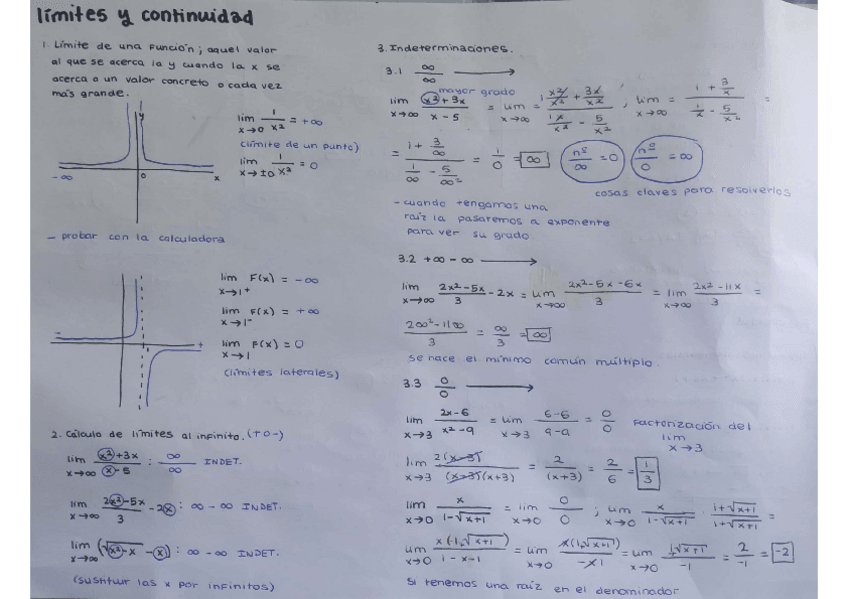 límites y continuidad
1. Límite de una función; aquel valor
al que se acerca la y cuando la x se
acerca a un valor concreto o cada vez
más grande.
y
lim x→0 1/x² = +∞
(límite de un punto)
lim x→±0 1/x² = 0
-∞ 0 x
- probar con la calculadora
lim x→1⁺ F(x) = -∞
lim x→1⁻ F(x) = +∞
lim x→1 F(x) = 0
(límites laterales)
- +
2. Cálculo de límites al infinito. (TO-)
lim x→∞ x²+3x / x-5 : ∞/∞ INDET.
lim x→∞ 2x²-5x / 3 - 2x : ∞ - ∞ INDET.
lim x→∞ (√x²-x - x) : ∞ - ∞ INDET.
(sustituir las x por infinitos)
3. Indeterminaciones.
3.1 ∞/∞ →
mayor grado
lim x→∞ x²+3x / x-5 = lim x→∞ (1x²/x² + 3x/x²) / (1x/x² - 5/x²) ; lim x→∞ (1 + 3/x) / (1/x - 5/x²) =
= (1 + 3/∞) / (1/∞ - 5/∞²) = 1/0 = ∞ nº/∞ = 0 nº/0 = ∞
cosas claves para resolverlos
- cuando tengamos una
raíz la pasaremos a exponente
para ver su grado.
3.2 +∞ - ∞ →
lim x→∞ 2x²-5x / 3 - 2x = lim x→∞ 2x²-5x-6x / 3 = lim x→∞ 2x²-11x / 3 =
2∞²-11∞ / 3 = ∞/3 = ∞
se hace el mínimo común múltiplo.
3.3 0/0 →
lim x→3 2x-6 / x²-9 = lim x→3 6-6 / 9-9 = 0/0 Factorización del
lim x→3
lim x→3 2(x-3) / (x-3)(x+3) = 2/(x+3) = 2/6 = 1/3
lim x→0 x / 1-√x+1 = lim x→0 0/0 ; lim x→0 x / 1-√x+1 · 1+√x+1 / 1+√x+1 =
lim x→0 x(·1,√x+1) / 1-x-1 = lim x→0 x(1,√x+1) / -x1 = lim x→0 1,√x+1 / -1 = 2/-1 = -2
si tenemos una raíz en el denominador